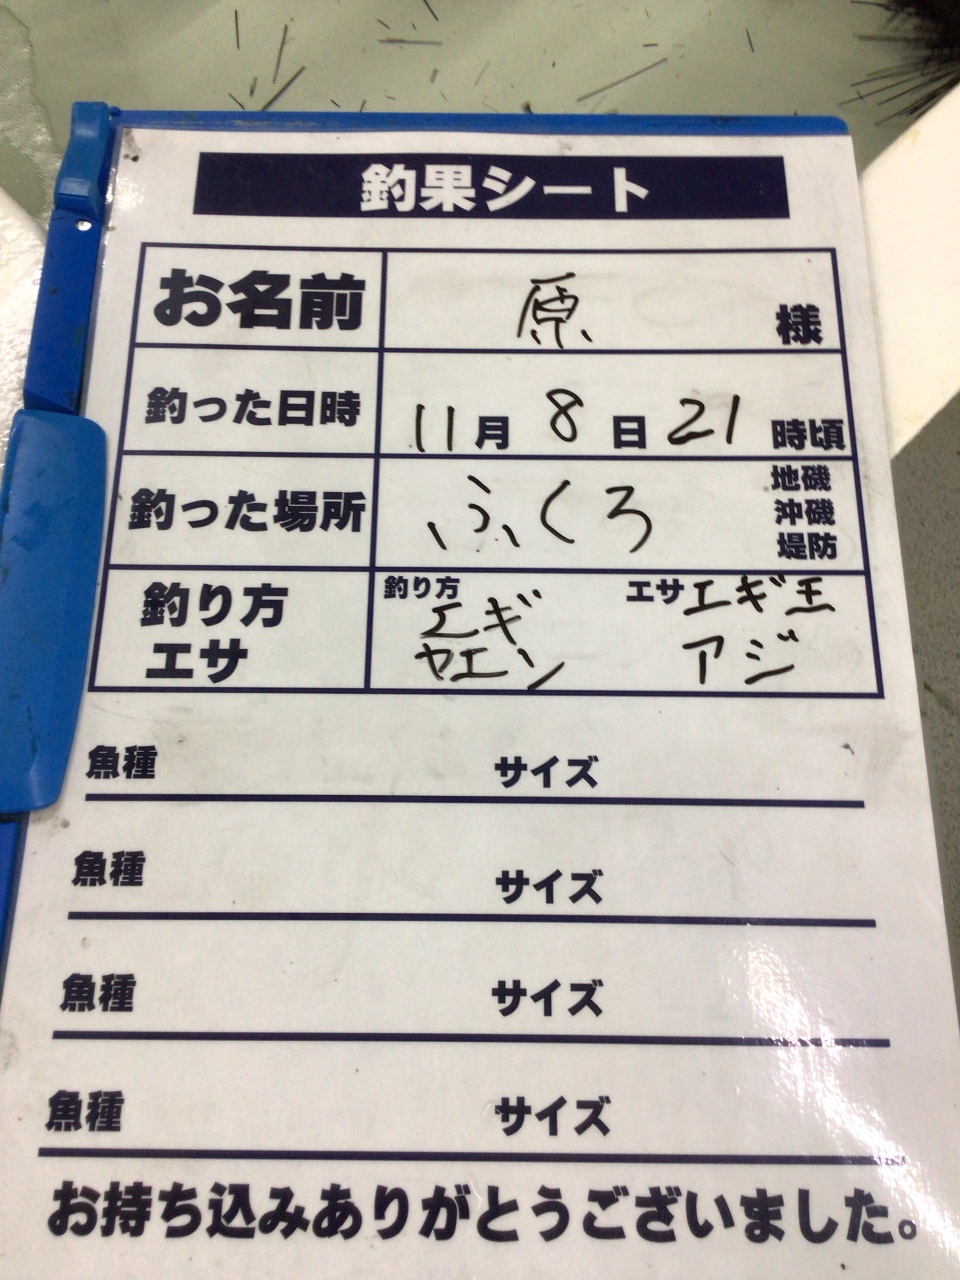 釣果シート
お名前 原 様
釣った日時 11月 8日 21時頃
釣った場所 ふくろ 地磯
沖磯
堤防
釣り方 釣り方 エギ エサ エギ王
エサ ヤエン アジ
魚種 サイズ
魚種 サイズ
魚種 サイズ
魚種 サイズ
お持ち込みありがとうございました。